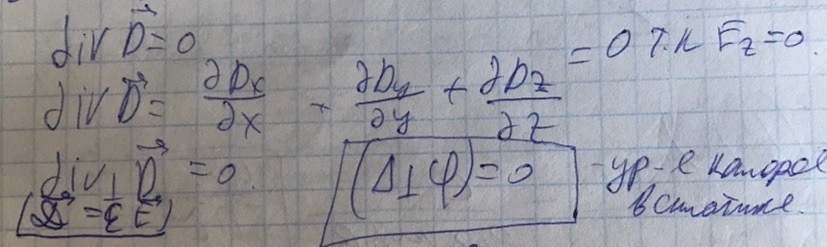 div D⃗ = 0
div D⃗ = ∂Dx/∂x + ∂Dy/∂y + ∂Dz/∂z = 0 т.к Ez = 0.
div⊥ D⃗ = 0. (Δ⊥φ) = 0 - ур-е которое
(D⃗ = ε E⃗) в статике.